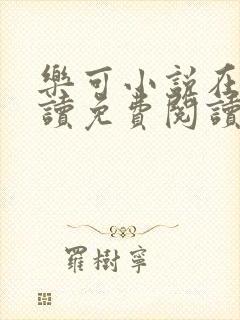 樂可小說在
讀免費閱讀
羅樹寧